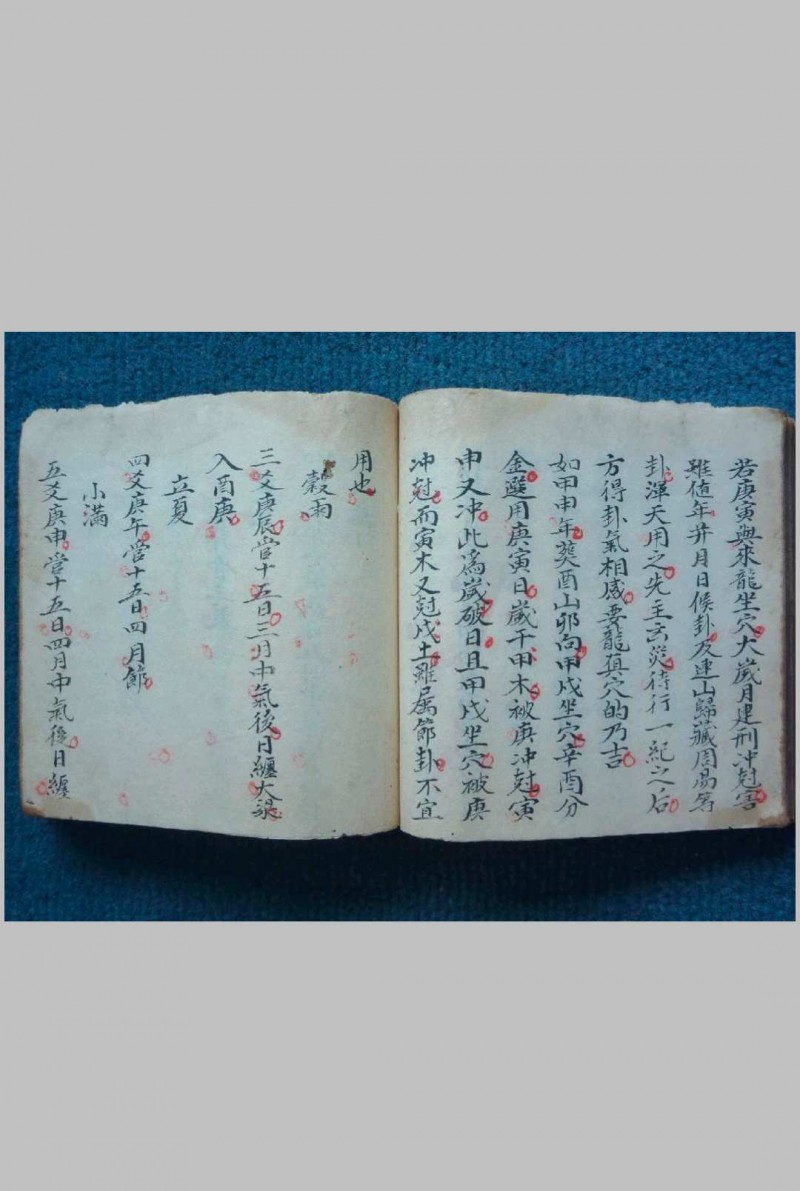 若庚寅與來龍坐穴大歲月建刑冲尅害
雖值年升月日候卦及連山歸藏周昜筭
卦渾天用之先主災待行一紀之后
方得卦氣相感要龍真穴的乃吉
如甲申年葵酉山卯向甲戊坐穴辛酉分
金選用庚寅日歲干甲木被庚冲尅寅
申又冲此為歲破日且甲戊坐穴被庚
冲尅而寅木又尅戊土雖属節卦不宜
用也
穀雨
三爻庚辰當十五日三月中氣後日纏大梁
入酉庚
立夏
四爻庚午當十五日四月節
小滿
五爻庚申當十五日四月中氣後日纏